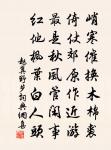 峭寒催换木棉裘
倚杖郊原作近游
最是秋风管闲事
红他枫叶白人头
赵翼野步词典网奉